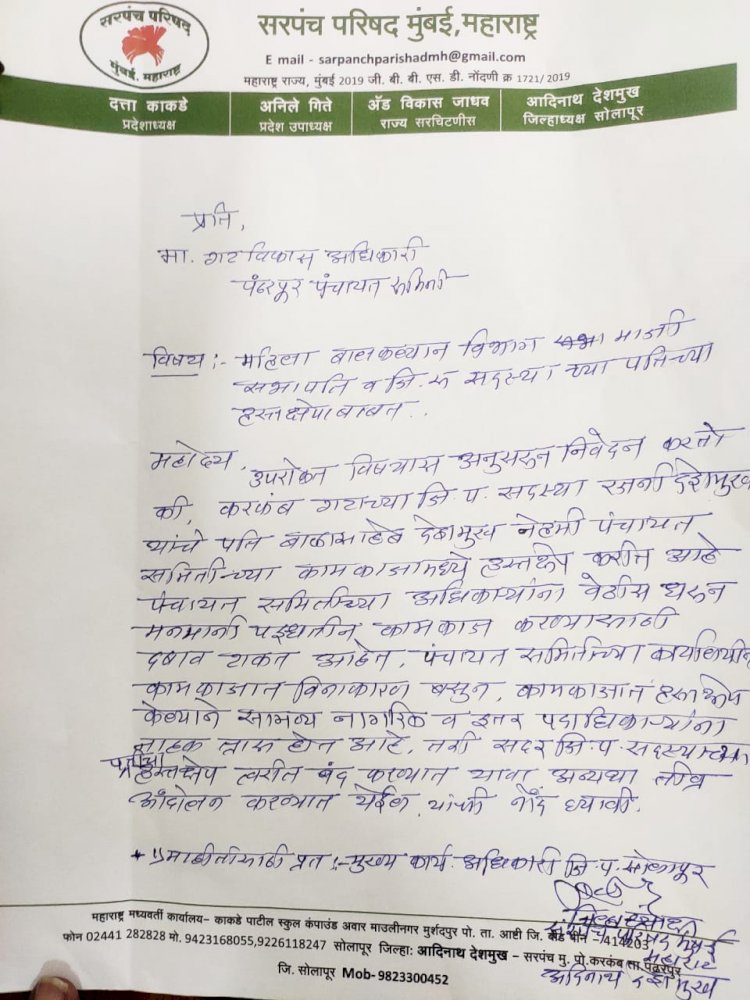 सरपंच परिषद
मुंबई. महाराष्ट्र
सरपंच परिषद मुंबई,महाराष्ट्र
E mail - sarpanchparishadmh@gmail.com
महाराष्ट्र राज्य, मुंबई 2019 जी. बी. बी. एस. डी. नोंदणी क्र 1721/2019
दत्ता काकडे अनिल गिते अ‍ॅड विकास जाधव आदिनाथ देशमुख
प्रदेशाध्यक्ष प्रदेश उपाध्यक्ष राज्य सरचिटणीस जिल्हाध्यक्ष सोलापूर
प्रति,
मा. गटविकास अधिकारी
पंढरपूर पंचायत समिती
विषय :- महिला बालकल्यान विभाग माजी
सभापति व जि.प सदस्या च्या पतिच्या
हस्तक्षेपाबाबत..
महोदय, उपरोक्त विषयास अनुसरुन निवेदन करतो
की, करकंब गटाच्या जि.प. सदस्या रजनी देशमुख
यांचे पति बाळासाहेब देशमुख नेहमी पंचायत
समितीच्या कामकाजामध्ये हस्तक्षेप करीत आहे
पंचायत समितीच्या अधिकाऱ्यांना वेठीस धरुन
मनमानी पध्दतीने कामकाज करण्यासाठी
दबाव टाकत आहेत, पंचायत समितीच्या कार्यालयीन
कामकाजात विनाकारण बसुन, कामकाजात हस्तक्षेप
केल्याने सामान्य नागरिक व इतर पदाधिकाऱ्यांना
नाहक त्रास होत आहे, तरी सदर जि.प. सदस्याच्या
पतीचा हस्तक्षेप त्वरीत बंद करण्यात यावा अन्यथा तीव्र
आंदोलन करण्यात येईल, यांची नोंद घ्यावी.
* माहीतीसाठी प्रत :- मुख्य कार्य. अधिकारी जि.प. सोलापूर
जिल्हाध्यक्ष
सरपंच परिषद मुंबई
महाराष्ट्र
आदिनाथ देशमुख
महाराष्ट्र मध्यवर्ती कार्यालय- काकडे पाटील स्कुल कंपाउंड अवार माउलीनगर मुर्शदपुर पो. ता. आष्टी जि. बीड पीन -414203
फोन 02441 282828 मो. 9423168055,9226118247 सोलापूर जिल्हा: आदिनाथ देशमुख – सरपंच मु. प्रो.करकंब ता.पंढरपुर
जि. सोलापूर Mob- 9823300452